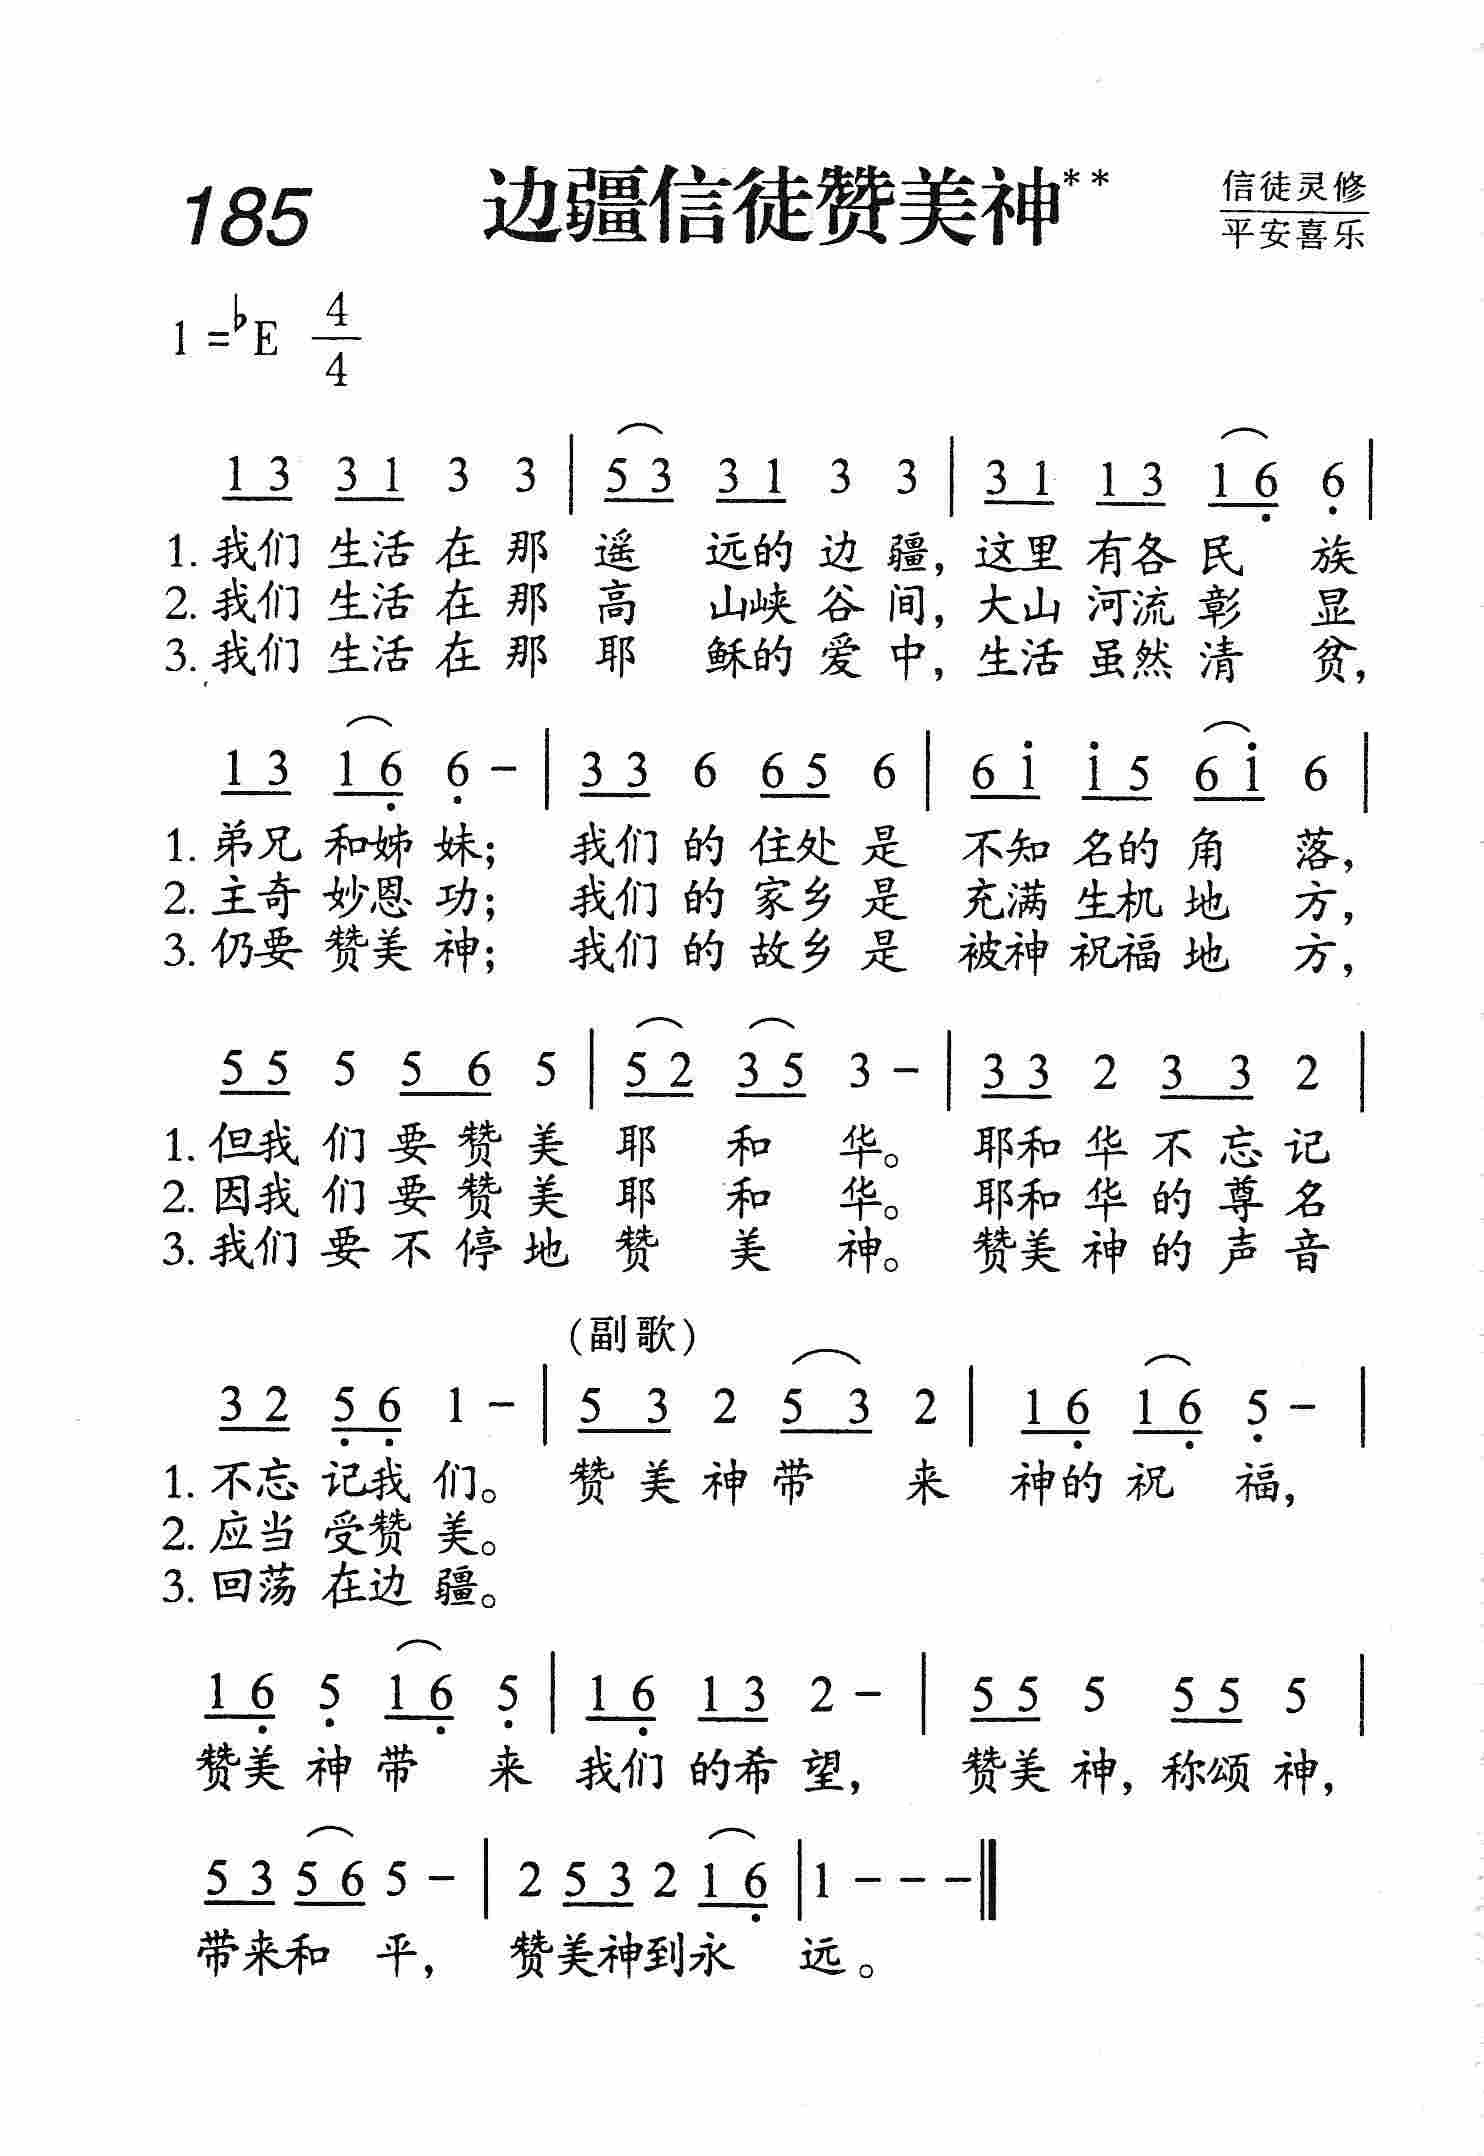 185 边疆信徒赞美神** 信徒灵修
平安喜乐
1=♭E 4/4
1 3 3 1 3 3 | 5 3 3 1 3 3 | 3 1 1 3 1 6̣ 6̣ |
1. 我们 生活 在 那 遥 远的 边 疆, 这里 有各 民 族
2. 我们 生活 在 那 高 山峡 谷 间, 大山 河流 彰 显
3. 我们 生活 在 那 耶 稣的 爱 中, 生活 虽然 清 贫,
1 3 1 6̣ 6̣ - | 3 3 6 6 5 6 | 6 1̇ 1̇ 5 6 1̇ 6 |
1. 弟兄 和姊 妹; 我们 的 住处 是 不知 名的 角 落,
2. 主奇 妙恩 功; 我们 的 家乡 是 充满 生机 地 方,
3. 仍要 赞美 神; 我们 的 故乡 是 被神 祝福 地 方,
5 5 5 5 6 5 | 5 2 3 5 3 - | 3 3 2 3 3 2 |
1. 但我 们 要 赞 美 耶 和 华。 耶和 华 不 忘 记
2. 因我 们 要 赞 美 耶 和 华。 耶和 华 的 尊 名
3. 我们 要 不 停 地 赞 美 神。 赞美 神 的 声 音
(副歌)
3 2 5̣ 6̣ 1 - | 5 3 2 5 3 2 | 1 6̣ 1 6̣ 5̣ - |
1. 不忘 记我 们。 赞 美 神 带 来 神的 祝 福,
2. 应当 受赞 美。
3. 回荡 在边 疆。
1 6̣ 5̣ 1 6̣ 5̣ | 1 6̣ 1 3 2 - | 5 5 5 5 5 5 |
赞美 神 带 来 我们 的希 望, 赞美 神, 称颂 神,
5 3 5 6 5 - | 2 5 3 2 1 6̣ | 1 - - - ‖
带来和 平, 赞美神到永 远。